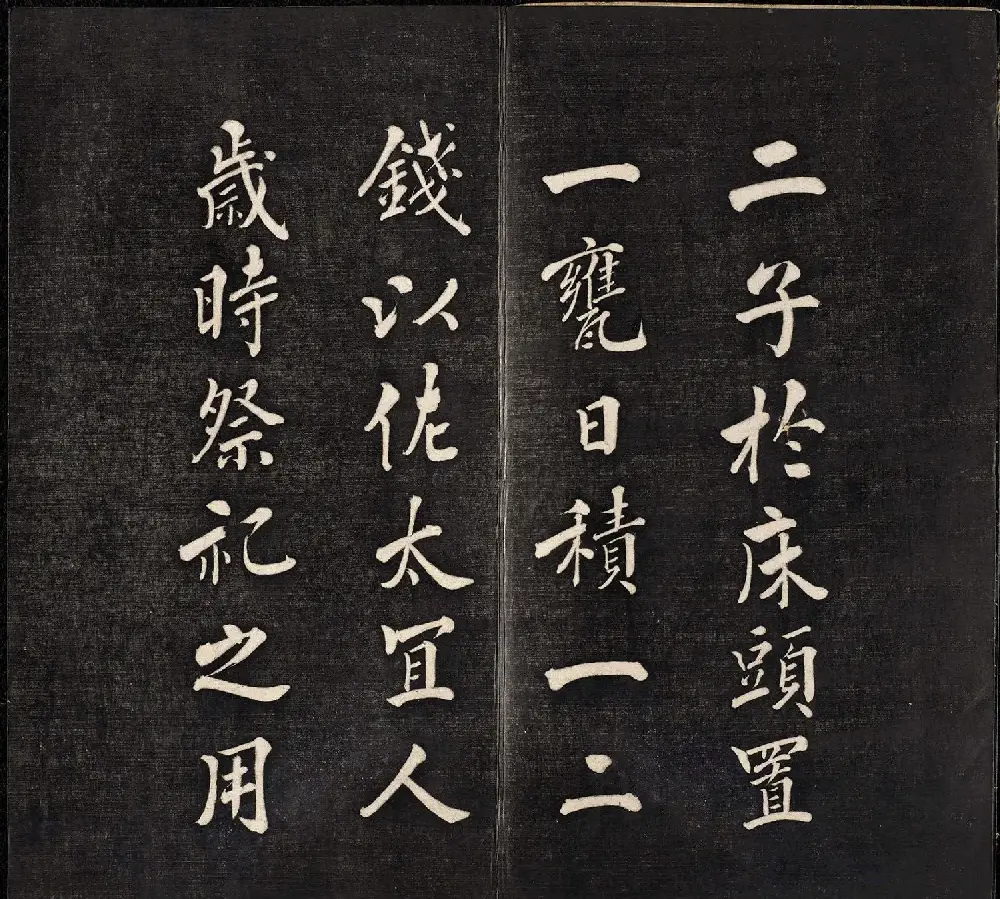 二子於床頭置
一甕日積一二
錢以佐太冝人
歲時祭祀之用